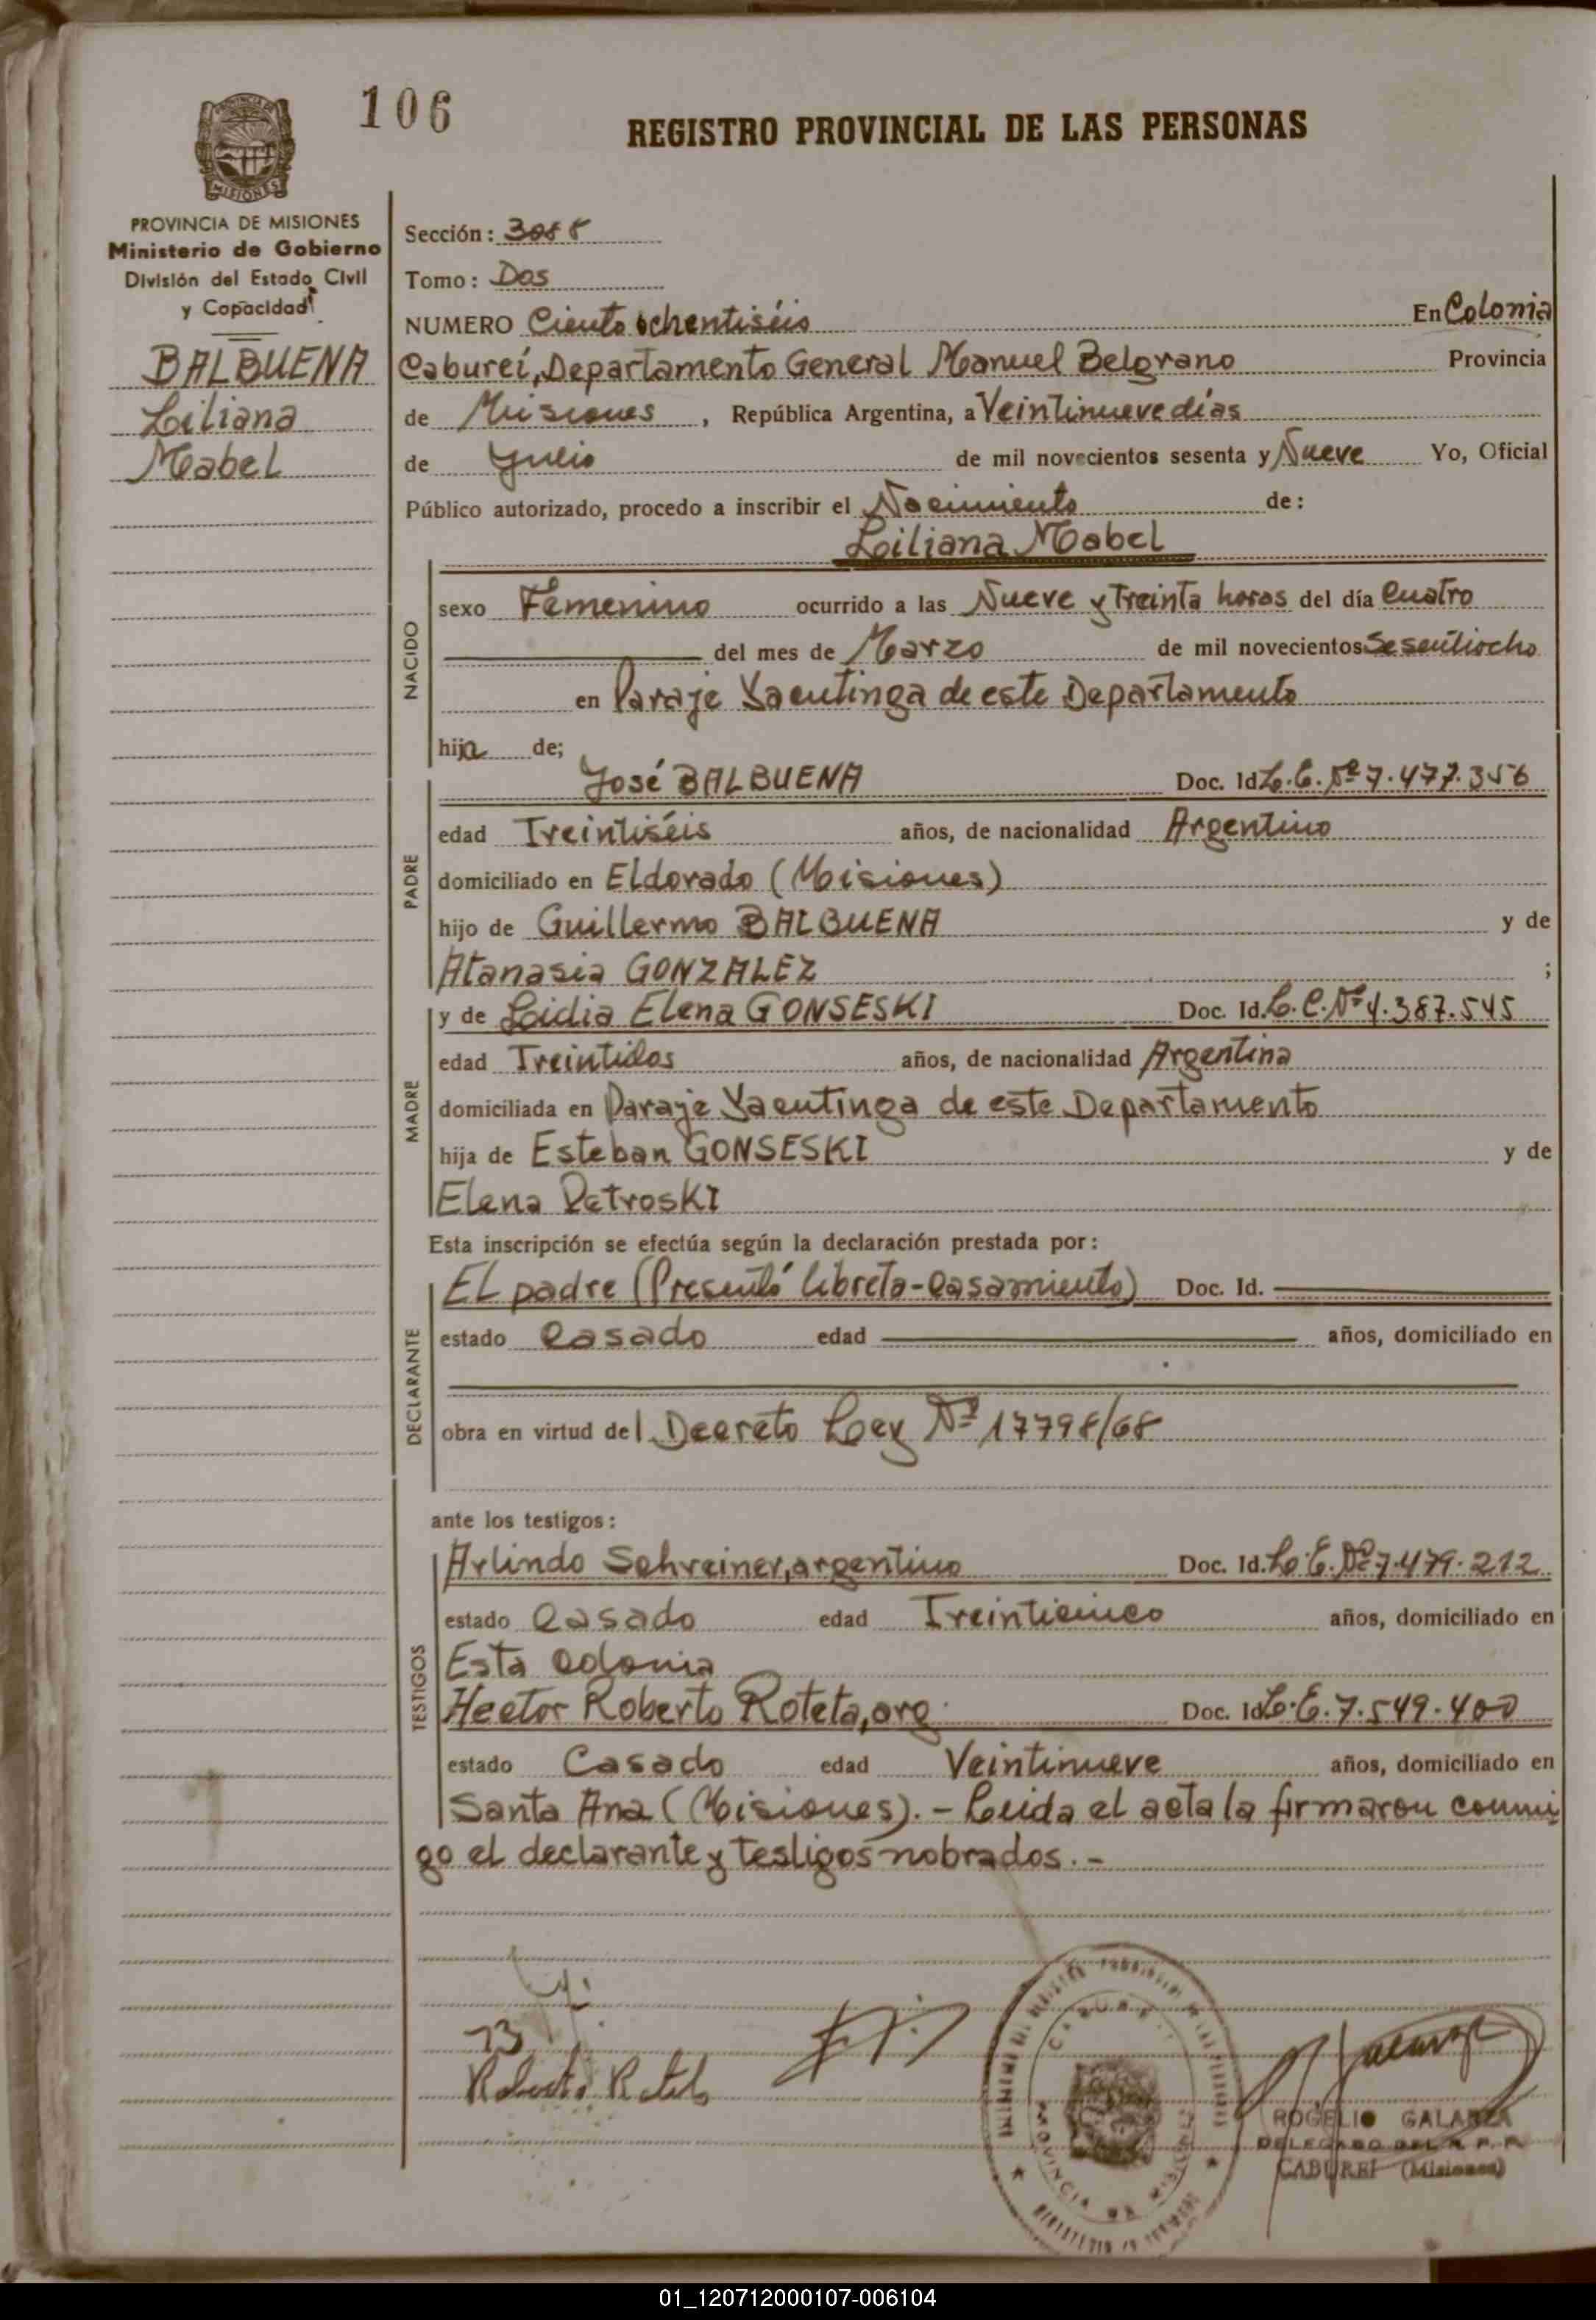 106
REGISTRO PROVINCIAL DE LAS PERSONAS
PROVINCIA DE MISIONES
Ministerio de Gobierno
División del Estado Civil
y Capacidad
BALBUENA
Liliana
Mabel
Sección: 3088
Tomo: Dos
NUMERO Ciento ochentiséis En Colonia
Caburei, Departamento General Manuel Belgrano Provincia
de Misiones, República Argentina, a Veintinueve días
de Julio de mil novecientos sesenta y Nueve Yo, Oficial
Público autorizado, procedo a inscribir el Nacimiento de:
Liliana Mabel
NACIDO
sexo Femenino ocurrido a las Nueve y Treinta horas del día Cuatro
del mes de Marzo de mil novecientos Sesentiocho
en Paraje Yacutinga de este Departamento
hija de;
PADRE
José BALBUENA Doc. Id L.E. Nº 7.477.356
edad Treintiséis años, de nacionalidad Argentino
domiciliado en Eldorado (Misiones)
hijo de Guillermo BALBUENA y de
Atanasia GONZALEZ ;
MADRE
y de Lidia Elena GONSESKI Doc. Id. L.C. Nº 4.387.545
edad Treintidos años, de nacionalidad Argentina
domiciliada en Paraje Yacutinga de este Departamento
hija de Esteban GONSESKI y de
Elena PetroskI
Esta inscripción se efectúa según la declaración prestada por:
DECLARANTE
EL padre (Presentó libreta-casamiento) Doc. Id.
estado Casado edad años, domiciliado en
obra en virtud del Decreto Ley Nº 17798/68
ante los testigos:
TESTIGOS
Arlindo Schreiner, argentino Doc. Id. L.E. Nº 7.479.212
estado Casado edad Treinticinco años, domiciliado en
Esta Colonia
Hector Roberto Roteta, arg. Doc. Id L.E. 7.549.400
estado Casado edad Veintinueve años, domiciliado en
Santa Ana (Misiones). - Leida el acta la firmaron conmi
go el declarante y testigos nobrados. -
Roberto Roteta
CABUREI
PROVINCIA DE MISIONES
ROGELIO GALARZA
DELEGADO DEL R. P. P.
CABUREI (Misiones)
01_120712000107-006104